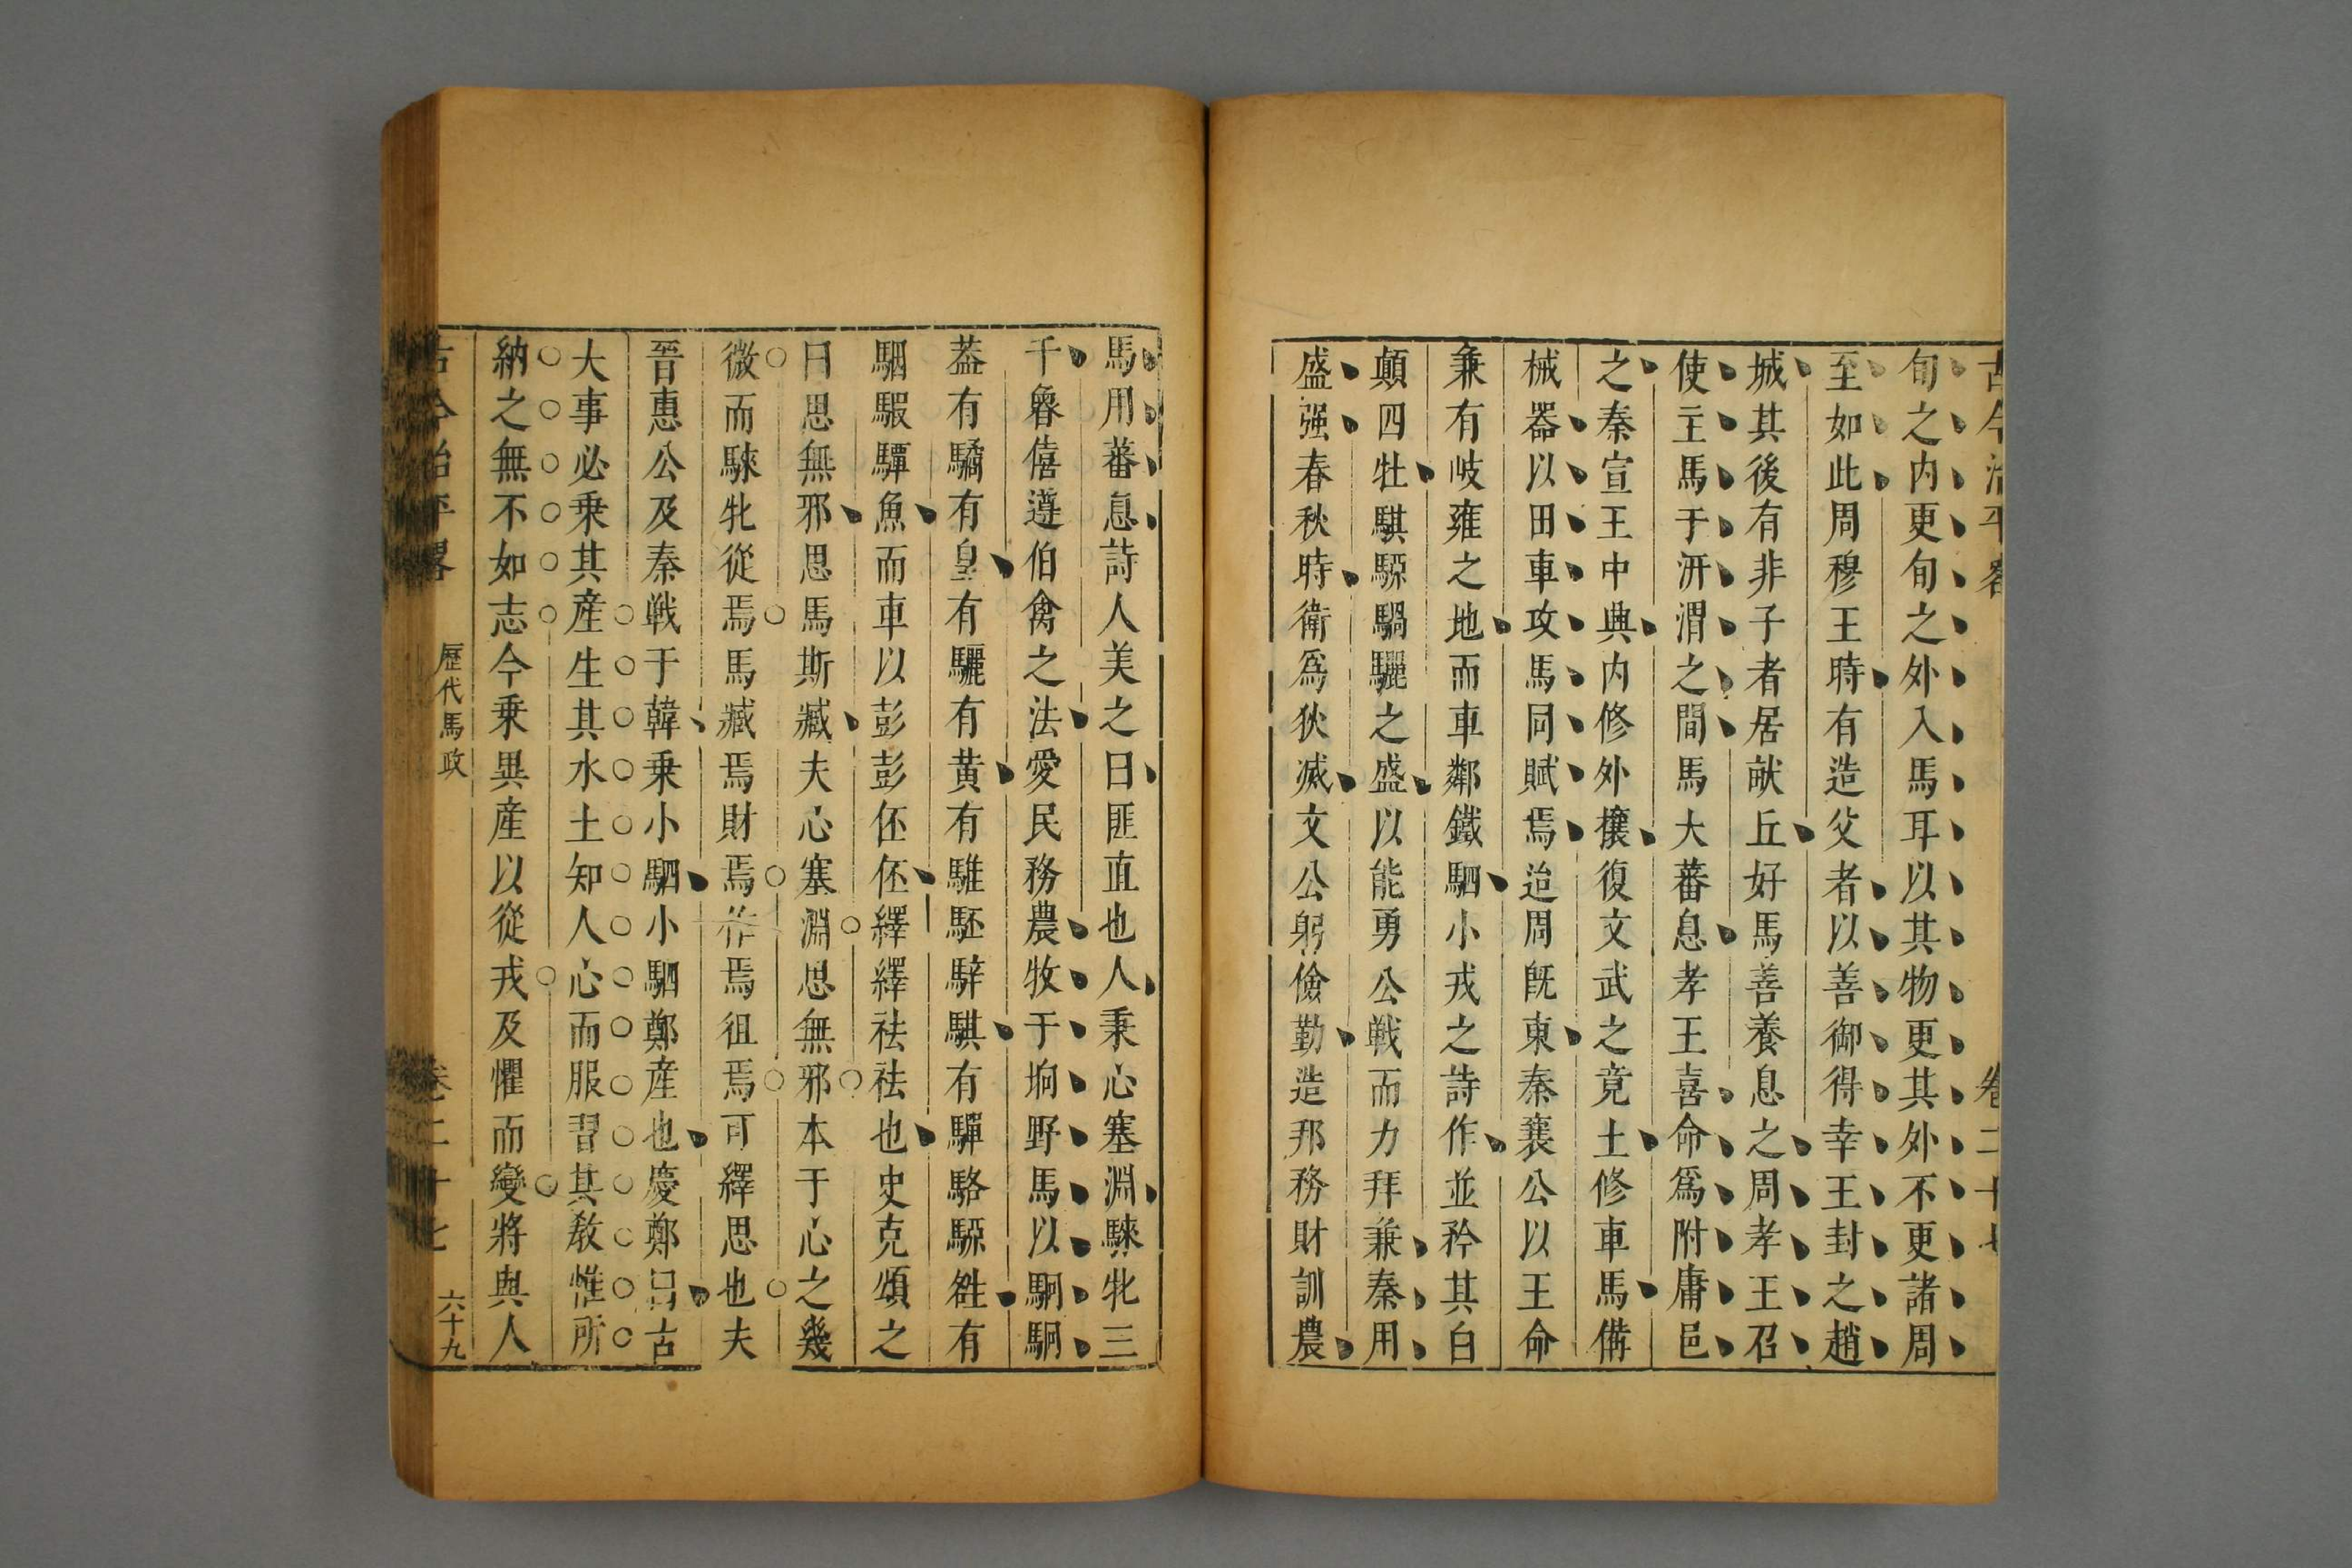 古今治平畧 卷二十七
旬之内更旬之外入馬耳以其物更其外不更諸周
至如此周穆王時有造父者以善御得幸王封之趙
城其後有非子者居畎丘好馬善養息之周孝王召
使主馬于汧渭之間馬大蕃息孝王喜命爲附庸邑
之秦宣王中興内修外攘復文武之竟土修車馬備
械器以田車攻馬同賦焉迨周旣東秦襄公以王命
兼有岐雍之地而車鄰鐵駟小戎之詩作並矜其白
顛四牡騏騵騧驪之盛以能勇公戰而力拜兼秦用
盛强春秋時衛爲狄滅文公躬儉勤造邦務財訓農
馬用蕃息詩人美之曰匪直也人秉心塞淵騋牝三
千魯僖遵伯禽之法愛民務農牧于坰野馬以駉駉
葢有驈有皇有驪有黄有騅駓騂騏有驒駱騵雒有
駰騢驔魚而車以彭彭伾伾繹繹祛祛也史克頌之
曰思無邪思馬斯臧夫心塞淵思無邪本于心之幾
微而騋牝從焉馬臧焉財焉作焉徂焉可繹思也夫
晉惠公及秦戰于韓乗小駟小駟鄭産也慶鄭曰古
大事必乗其産生其水土知人心而服習其敎惟所
納之無不如志今乗異産以從戎及懼而變將與人
古今治平畧 歷代馬政 卷二十七 六十九